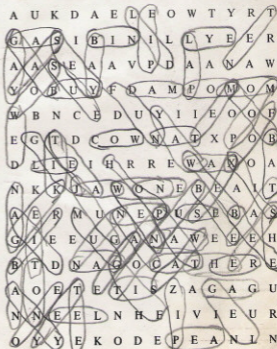 A U K D A E L E O W T Y R T
G A S I B I N I L Y E E R
A A S E A A V P D A A N A W
Y O B U Y F D A M P O M O M
W B N C E D U Y I I E O O F
E G T D C O W N A T X P O B
D L I E I H R R E W A X O A
N K K J A W O N E B E A I T
A E R M U N E P U S P B A S
G I E E U G A N A W E E E H
B T D N A G O C A T H E R E
A O E T E T I S Z A G A G U
N N E E L N H F I V I E U R
O Y Y E K O D E P E A N L N